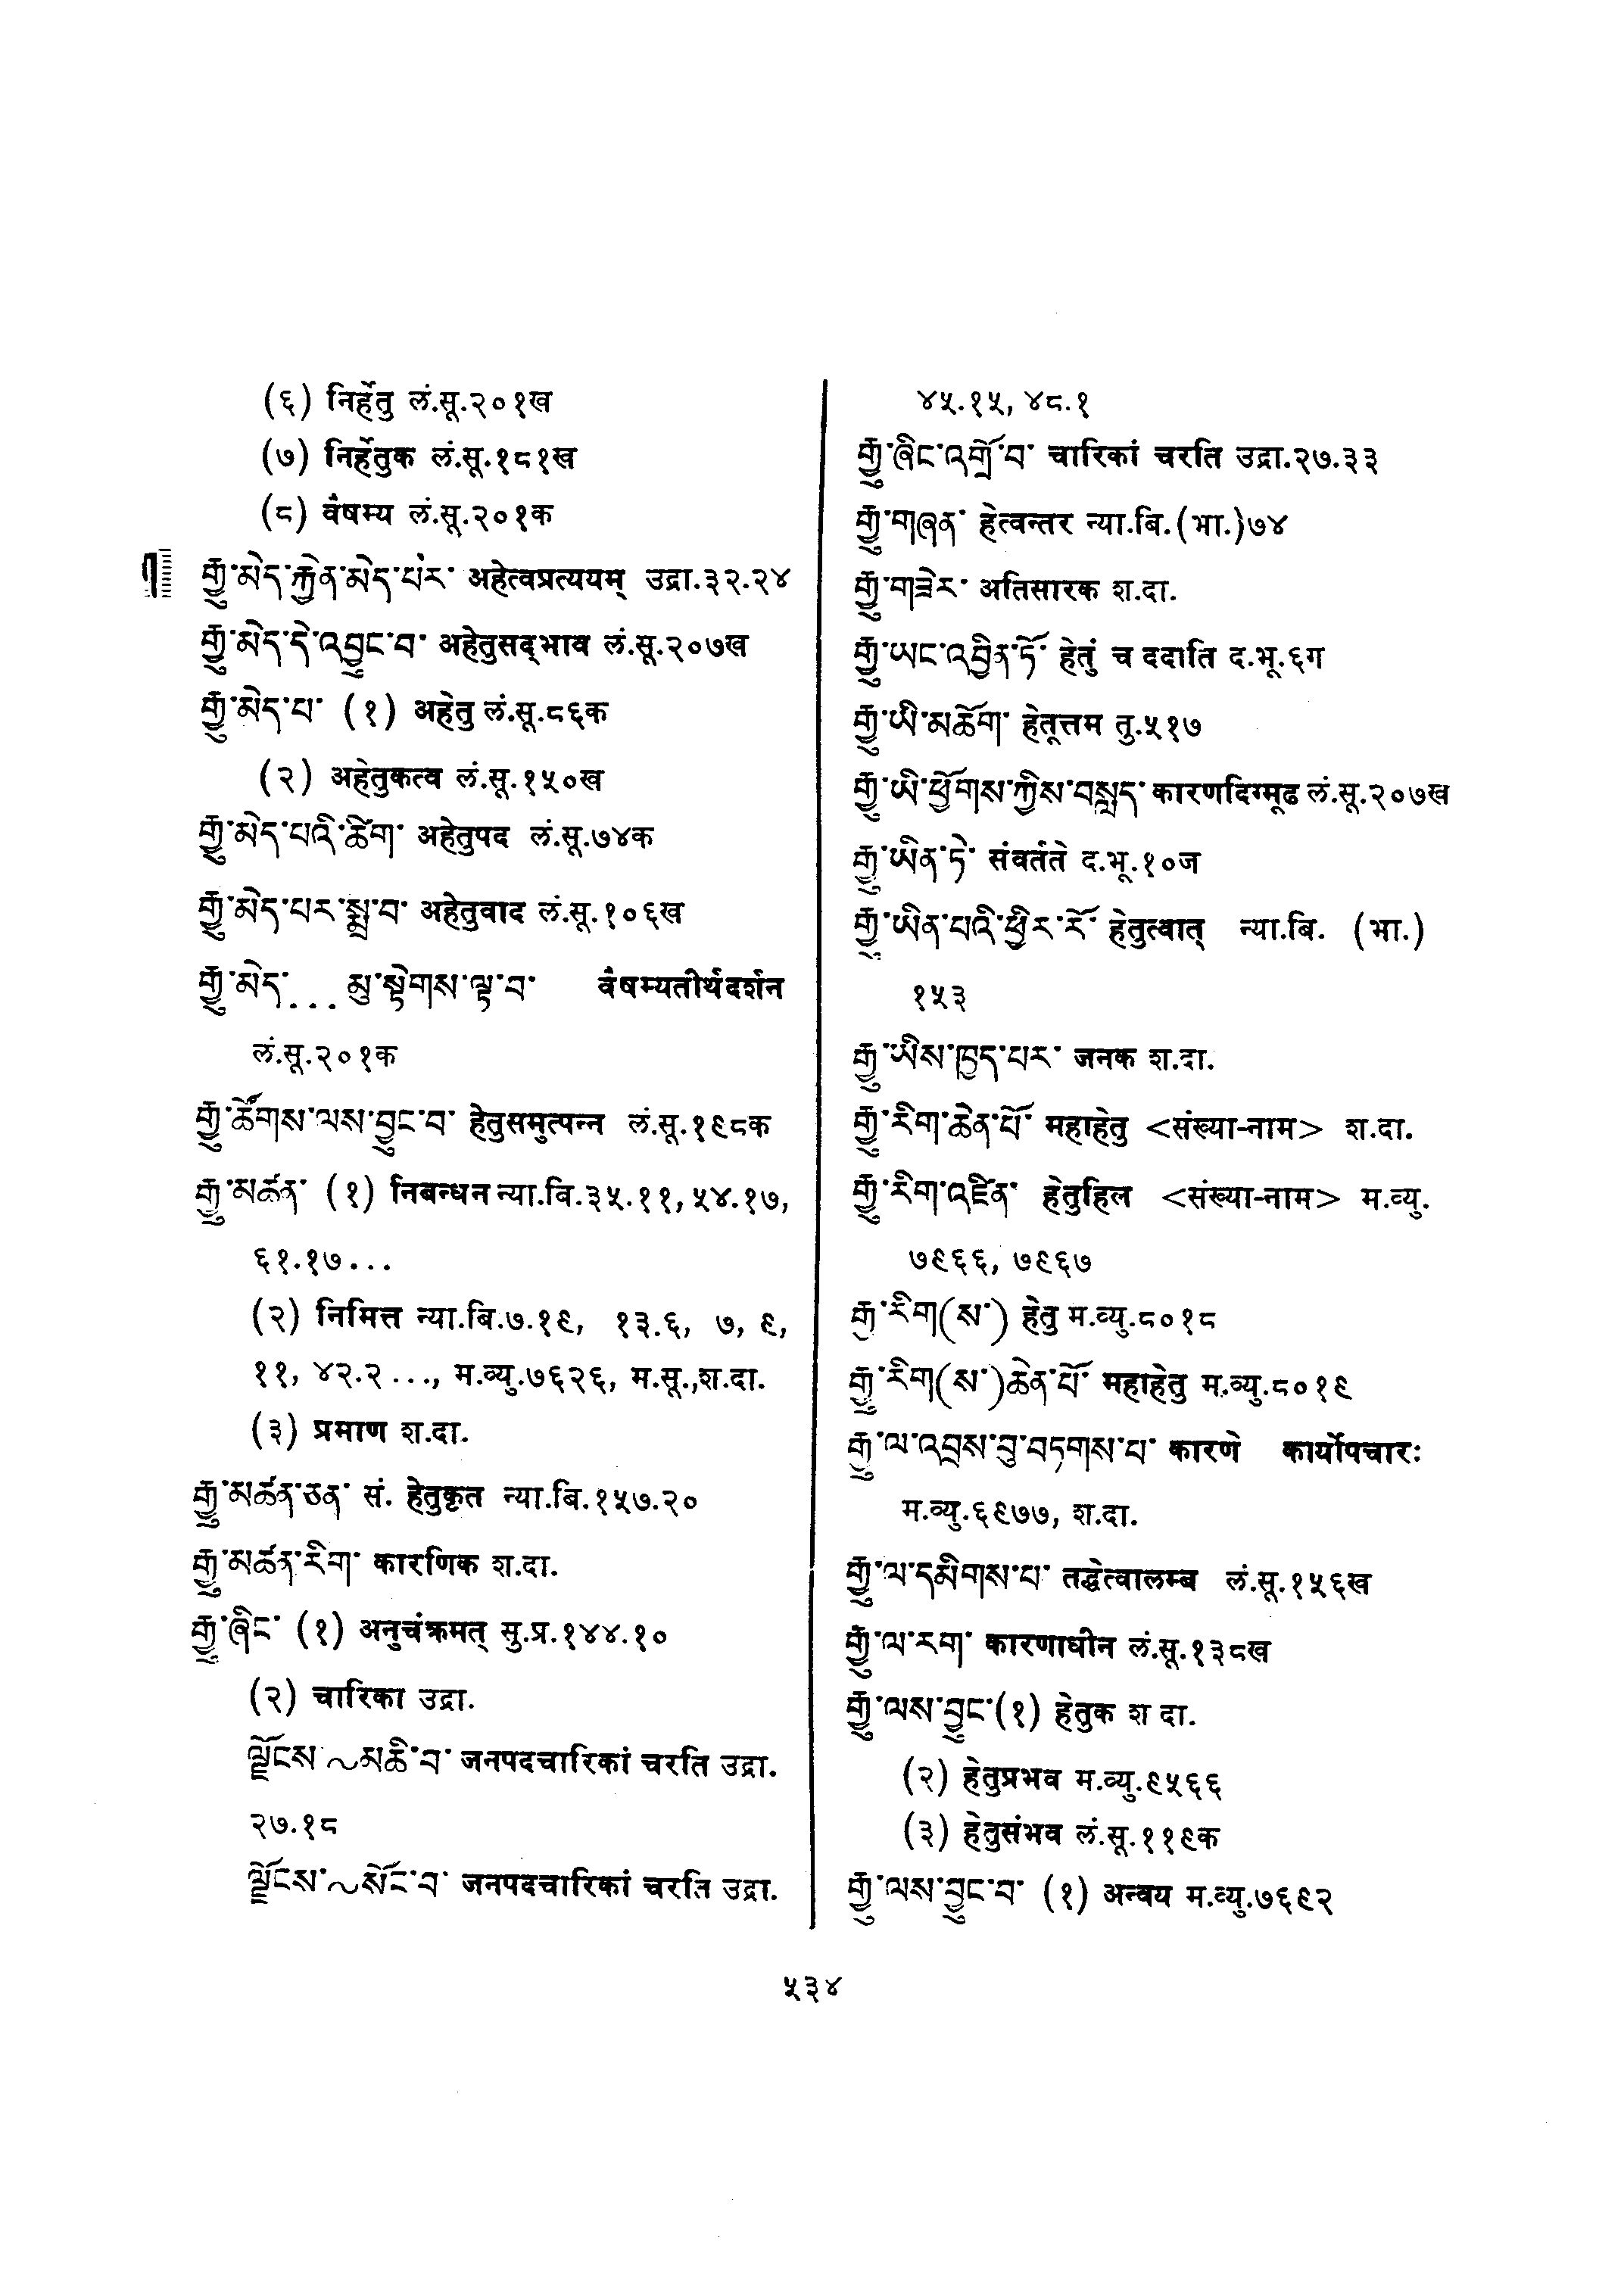 (६) निर्हेतु लं.सू.२०१ख
(७) निर्हेतुक लं.सू.१८१ख
(८) वैषम्य लं.सू.२०१क
རྒྱུ་མེད་རྐྱེན་མེད་པར་ अहेत्वप्रत्ययम् उद्रा.३२.२४
རྒྱུ་མེད་དེ་འབྱུང་བ་ अहेतुसद्भाव लं.सू.२०७ख
རྒྱུ་མེད་པ་ (१) अहेतु लं.सू.८६क
(२) अहेतुकत्व लं.सू.१५०ख
རྒྱུ་མེད་པའི་ཚིག་ अहेतुपद लं.सू.७४क
རྒྱུ་མེད་པར་སྨྲ་བ་ अहेतुवाद लं.सू.१०६ख
རྒྱུ་མེད་...མུ་སྟེགས་ལྟ་བ་ वैषम्यतीर्थदर्शन
लं.सू.२०१क
རྒྱུ་ཚོགས་ལས་བྱུང་བ་ हेतुसमुत्पन्न लं.सू.१९८क
རྒྱུ་མཚན་ (१) निबन्धन न्या.बि.३५.११, ५४.१७,
६१.१७...
(२) निमित्त न्या.बि.७.१९, १३.६, ७, ९,
११, ४२.२ ..., म.व्यु.७६२६, म.सू.,श.दा.
(३) प्रमाण श.दा.
རྒྱུ་མཚན་ཅན་ सं. हेतुकृत न्या.बि.१५७.२०
རྒྱུ་མཚན་རིག་ कारणिक श.दा.
རྒྱུ་ཞིང་ (१) अनुचंक्रमत् सु.प्र.१४४.१०
(२) चारिका उद्रा.
ལྗོངས་~མཆི་བ་ जनपदचारिकां चरति उद्रा.
२७.१८
ལྗོངས་~སོང་བ་ जनपदचारिकां चरति उद्रा.
४५.१५, ४८.१
རྒྱུ་ཞིང་འགྲོ་བ་ चारिकां चरति उद्रा.२७.३३
རྒྱུ་གཞན་ हेत्वन्तर न्या.बि.(भा.)७४
རྒྱུ་གཟེར་ अतिसारक श.दा.
རྒྱུ་ཡང་འབྱིན་ཏོ་ हेतुं च ददाति द.भू.६ग
རྒྱུ་ཡི་མཆོག་ हेतूत्तम तु.५१७
རྒྱུ་ཡི་ཕྱོགས་ཀྱིས་བསླད་ कारणदिग्मूढ लं.सू.२०७ख
རྒྱུ་ཡིན་ཏེ་ संवर्तते द.भू.१०ज
རྒྱུ་ཡིན་པའི་ཕྱིར་རོ་ हेतुत्वात् न्या.बि. (भा.)
१५३
རྒྱུ་ཡིས་ཁྱད་པར་ जनक श.दा.
རྒྱུ་རིག་ཆེན་པོ་ महाहेतु <संख्या-नाम> श.दा.
རྒྱུ་རིག་འཛིན་ हेतुहिल <संख्या-नाम> म.व्यु.
७९६६, ७९६७
རྒྱུ་རིག(ས་) हेतु म.व्यु.८०१८
རྒྱུ་རིག(ས་)ཆེན་པོ་ महाहेतु म.व्यु.८०१९
རྒྱུ་ལ་འབྲས་བུ་བཏགས་པ་ कारणे कार्योपचारः
म.व्यु.६९७७, श.दा.
རྒྱུ་ལ་དམིགས་པ་ तद्धेत्वालम्ब लं.सू.१५६ख
རྒྱུ་ལ་རག་ कारणाधीन लं.सू.१३८ख
རྒྱུ་ལས་བྱུང་(१) हेतुक श दा.
(२) हेतुप्रभव म.व्यु.९५६६
(३) हेतुसंभव लं.सू.११९क
རྒྱུ་ལས་བྱུང་བ་ (१) अन्वय म.व्यु.७६९२
५३४